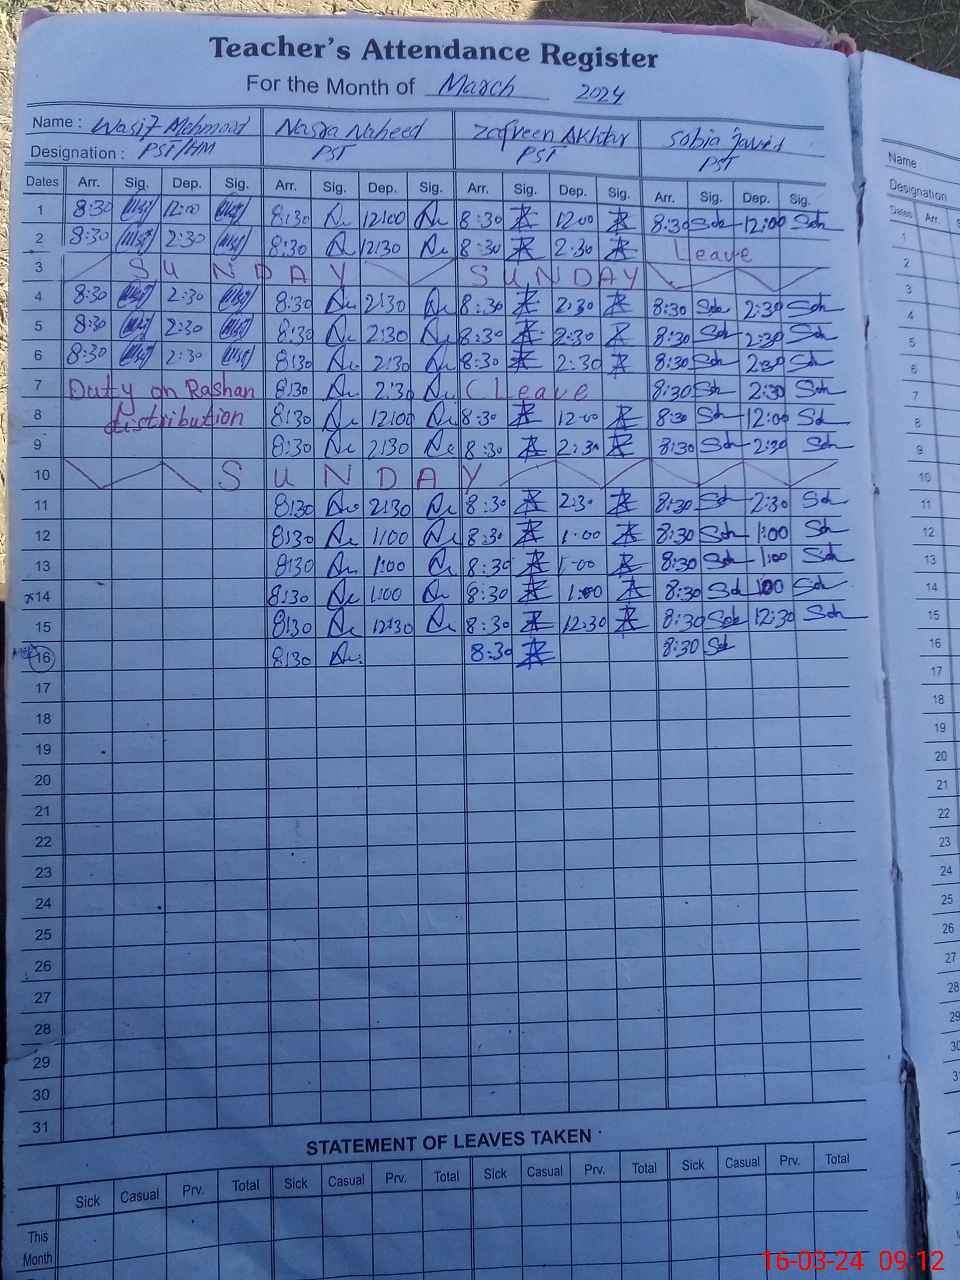 Teacher's Attendance Register
For the Month of March 2024
Name : Wasif Mehmood Nasra Naheed Zafreen Akhtar Sobia Javed
Designation : PST/HM PST PST PST
Dates Arr. Sig. Dep. Sig. Arr. Sig. Dep. Sig. Arr. Sig. Dep. Sig. Arr. Sig. Dep. Sig.
1 8:30 12:00 8:30 12:00 8:30 12:00 8:30 12:00
2 8:30 2:30 8:30 12:30 8:30 2:30 Leave
3 SUNDAY SUNDAY
4 8:30 2:30 8:30 2:30 8:30 2:30 8:30 2:30
5 8:30 2:30 8:30 2:30 8:30 2:30 8:30 2:30
6 8:30 2:30 8:30 2:30 8:30 2:30 8:30 2:30
7 Duty on Rashan 8:30 2:30 C Leave 8:30 2:30
8 distribution 8:30 12:00 8:30 12:00 8:30 12:00
9 8:30 2:30 8:30 2:30 8:30 2:30
10 SUNDAY
11 8:30 2:30 8:30 2:30 8:30 2:30
12 8:30 1:00 8:30 1:00 8:30 1:00
13 8:30 1:00 8:30 1:00 8:30 1:00
14 8:30 1:00 8:30 1:00 8:30 1:00
15 8:30 12:30 8:30 12:30 8:30 12:30
16 8:30 8:30 8:30
17
18
19
20
21
22
23
24
25
26
27
28
29
30
31
STATEMENT OF LEAVES TAKEN
Sick Casual Prv. Total Sick Casual Prv. Total Sick Casual Prv. Total Sick Casual Prv. Total
This
Month
Name
Designation
Dates Arr.
1
2
3
4
5
6
7
8
9
10
11
12
13
14
15
16
17
18
19
20
21
22
23
24
25
26
27
28
29
30
16-03-24 09:12